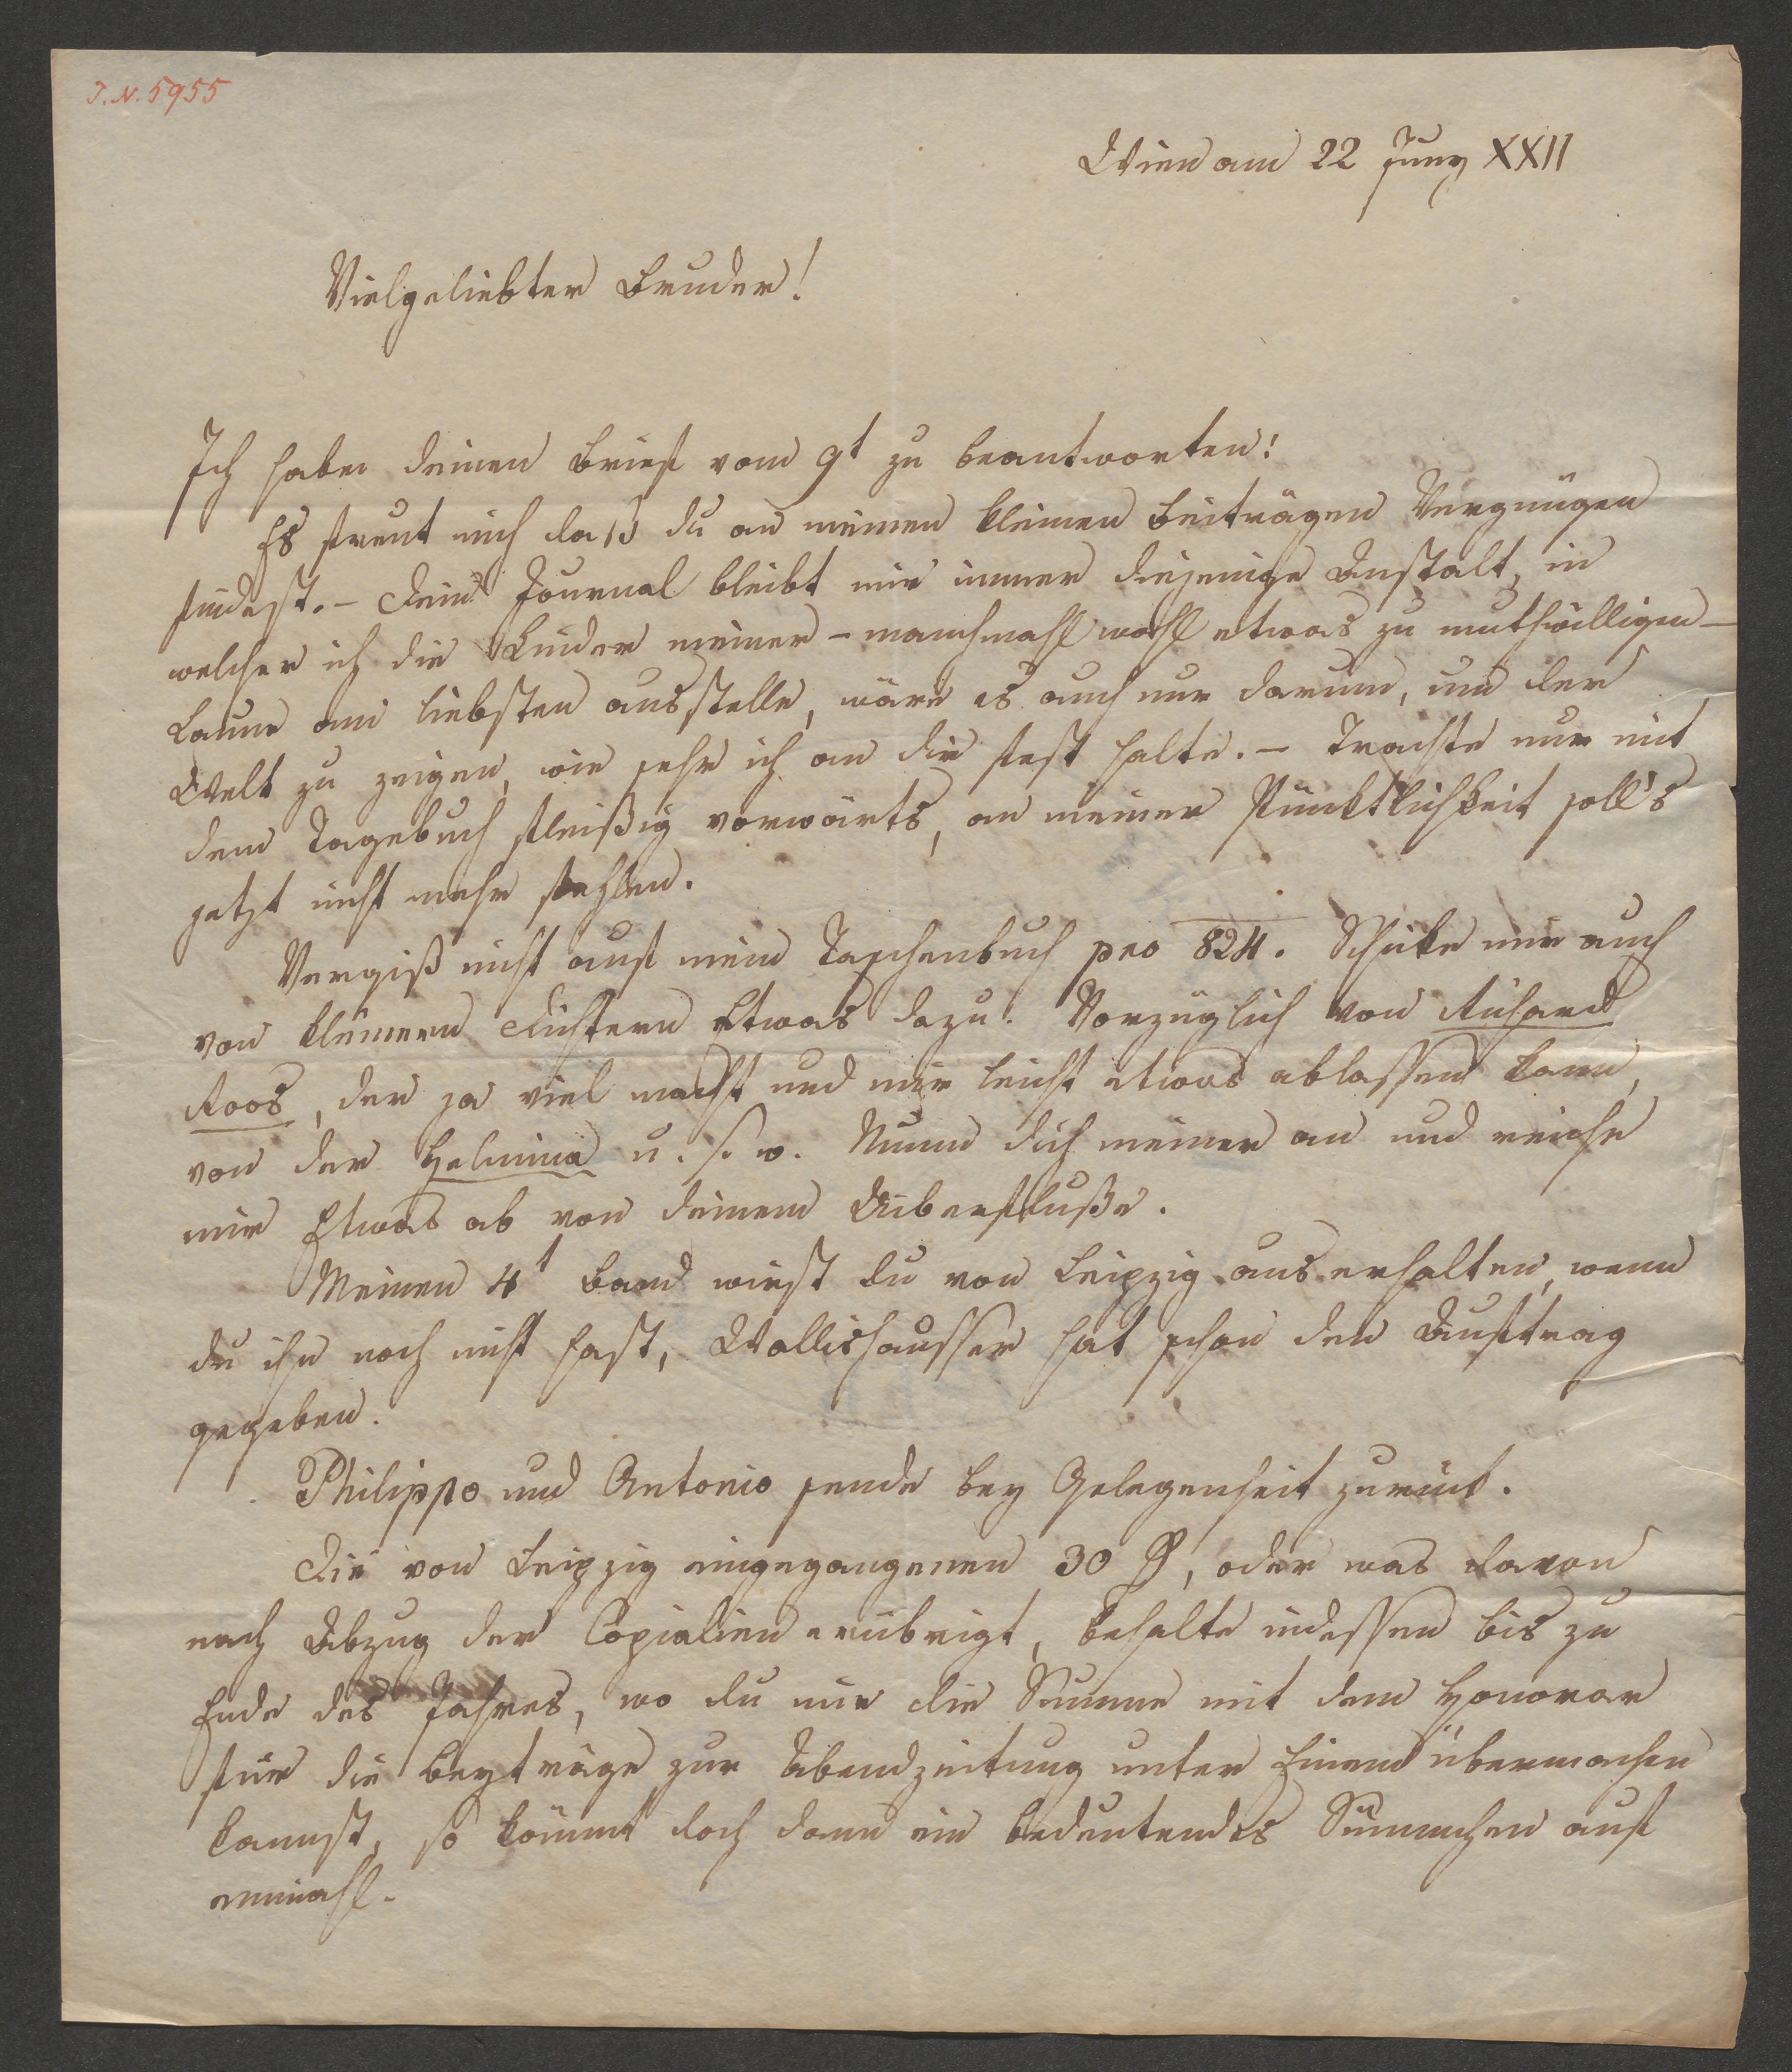 J. N. 5955
Wien am 22 Juny XXII
Vielgeliebter Bruder!
Ich habe deinen Brief vom 9t zu beantworten!
Es freut mich daß du an meinen kleinen Beiträgen Vergnügen
findest. – Dein Journal bleibt mir immer diejenige Anstalt, in
welcher ich die Kinder meiner – manchmahl wohl etwas zu muthwilligen –
Laune am liebsten ausstelle, wäre es auch nur darum, um der
Welt zu zeigen, wie sehr ich an dir fest halte. – Trachte nur mit
dem Tagebuch fleißig vorwärts, an meiner Pünktlichkeit soll's
jetzt nicht mehr fehlen.
Vergiß nicht auf mein Taschenbuch pro 824. Schicke mir auch
von kleinern Dichtern Etwas dazu. Vorzüglich von Richard
Roos, der ja viel macht und mir leicht etwas ablassen kann,
von der Helmina u. s. w. Nimm dich meiner an und reiche
mir Etwas ab von deinem Überfluße.
Meinen 4t Band wirst du von Leipzig aus erhalten, wenn
du ihn noch nicht hast, Wallishausser hat schon den Auftrag
gegeben.
Philippo und Antonio sende bey Gelegenheit zurück.
Die von Leipzig eingegangenen 30 , oder was davon
nach Abzug der Copialien erübrigt, behalte indessen bis zu
Ende des Jahres, wo du mir die Summe mit dem Honorar
für die Beyträge zur Abendzeitung unter Einem übermachen
kannst, so kömmt doch dann ein bedeutendes Sümmchen auf
einmahl.